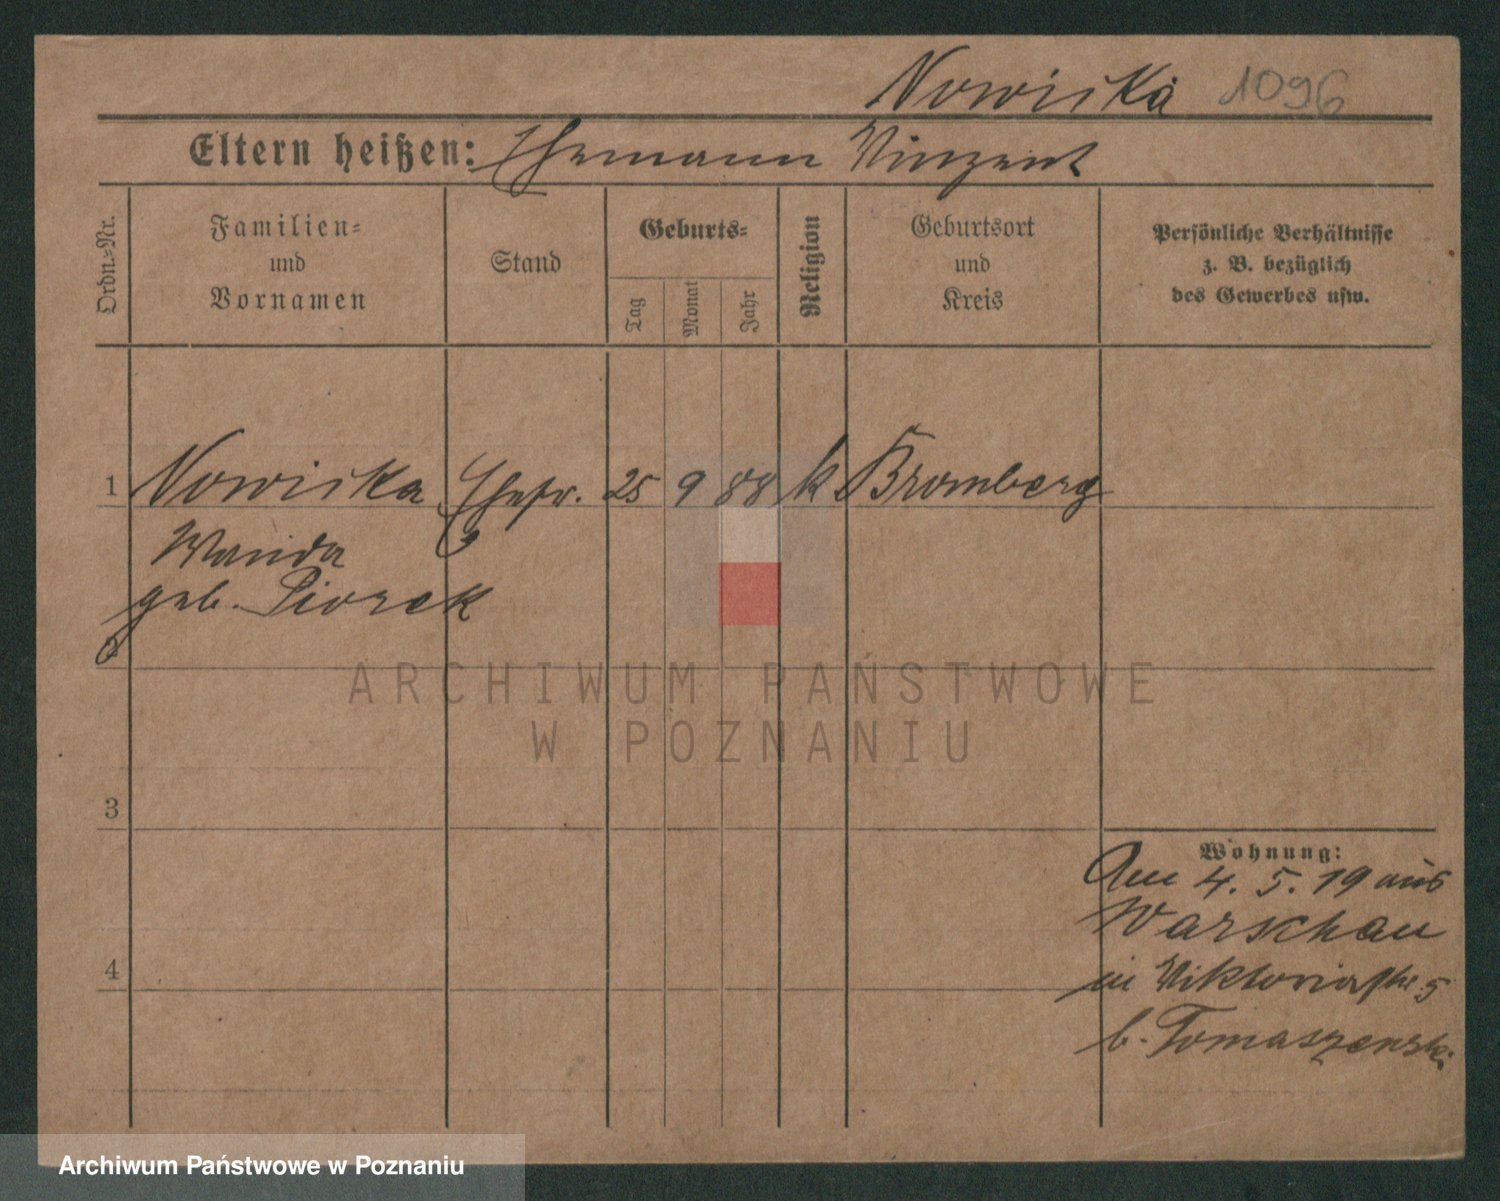 Nowiska 1096
Eltern heißen: Ehemann Vinzent
Ordn.-Nr.
Familien-
und
Vornamen
Stand
Geburts-
Tag
Monat
Jahr
Religion
Geburtsort
und
Kreis
Persönliche Verhältnisse
z. B. bezüglich
des Gewerbes usw.
1 Nowiska Ehefr. 25 9 88 k Bromberg
Wanda
geb. Piorek
2
3
Wohnung:
Am 4. 5. 19 aus
Warschau
4
in Viktoriastr 5
b. Tomaszewski
ARCHIWUM PAŃSTWOWE
W POZNANIU
Archiwum Państwowe w Poznaniu